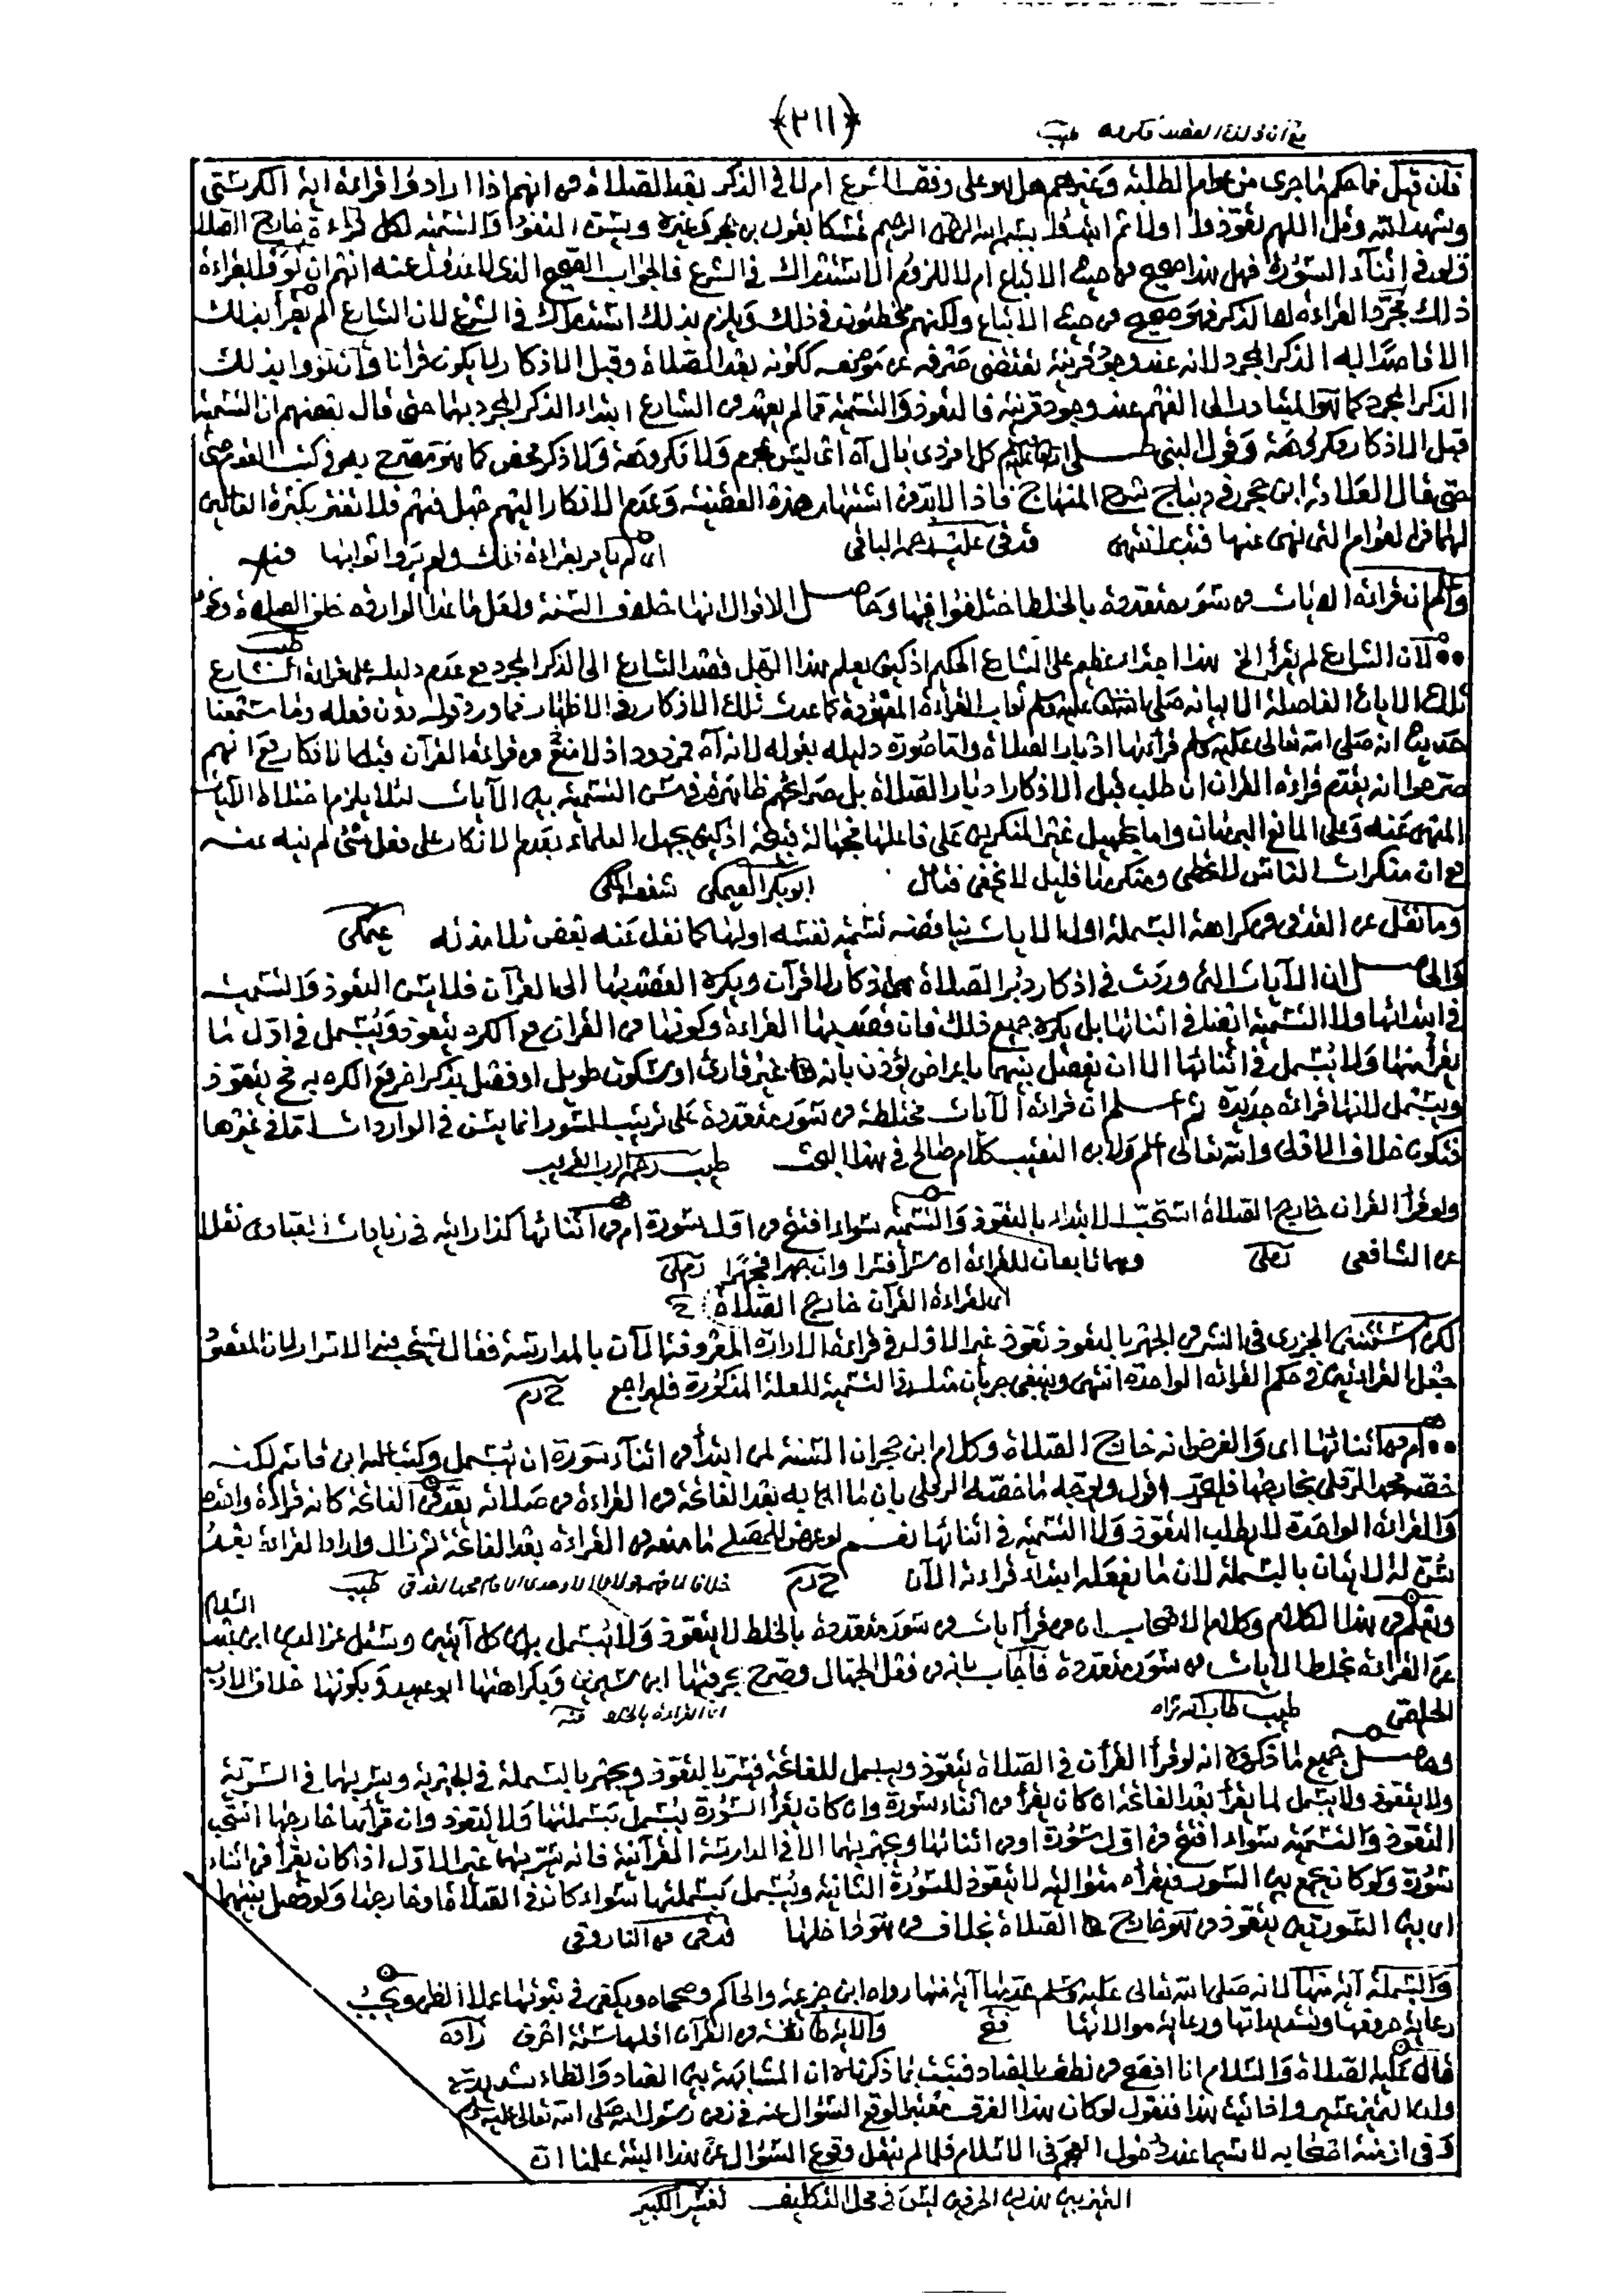 ﴿٢١١﴾
فان قيل فما حكم ما جرى من عوام الطلبة وغيرهم هل هو على وفق الشرع ام لا في الذكر بعد الصلاة من انهم اذا ارادوا قراءة آية الكرسي
وشهد الله وقل اللهم تعوذوا اولا ثم ابتدؤا بسم الله الرحمن الرحيم تمسكا بقول بن حجر وغيره ويسن التعوذ والتسمية لكل قراءة خارج الصلاة
ولو في اثناء السورة فهل هذا صحيح من حيث الاتباع ام لا للزوم الاستدراك في الشرع فالجواب الصحيح الذي لا عدول عنه انهم ان نووا بقراءة
ذلك مجرد القراءة لا الذكر فهو صحيح من حيث الاتباع ولكنهم مخطئون في ذلك ويلزم بذلك استدراك في الشرع لان الشارع لم يقرأ بذلك
الا قاصدا به الذكر المجرد لانه عند وجود قرينة تقتضي صرفه عن موضعه ككونه بعد الصلاة وقبل الاذكار لا يكون قرآنا وان نووا بذلك
الذكر المجرد كما هو المتبادر الى الفهم عند وجود قرينة فالتعوذ والتسمية مما لم يعهد من الشارع ابتداء الذكر المجرد بهما حتى قال بعضهم ان التسمية
قبل الاذكار مكروهة وقول النبي صلى الله عليه وسلم كل امر ذي بال آه اي ليس بمحرم ولا مكروهة ولا ذكر محض كما هو مصرح به في كتب القوم
حتى قال العلامة ابن حجر في ديباج شرح المنهاج فاذا لا بد من اشتهار هذه القضية وعدم الانكار اليهم جهل فيهم فلا تغتر بكثرة الفاعلين
لها من العوام التي نهى عنها فتدبر انتهى قدقي عليه رحمة الباقي
اي لم يأمر بقراءة ذلك ولم يرو اثوابها منه
واعلم ان قراءة الآيات من سور متعددة بالخلط اختلفوا فيها وحاصل الاقوال انها خلاف السنة ولعل ما عدا الواردة خلف الصلاة ونحو
طيب
لان الشارع لم يقرأ الخ هذا اجتراء عظيم على الشارع الحكيم اذ كيف يعلم هذا القائل قصد الشارع الى الذكر المجرد مع عدم دليله على قراءة الشارع
تلك الآيات الفاصلة الا بيانه صلى الله عليه وسلم ثواب القراءة المقصودة كما عدت تلك الاذكار في الاظهار مما ورد قوله دون فعله وما سمعنا
حديث انه صلى الله تعالى عليه وسلم قرأ بها ادبار الصلاة ولما صورة دليله بقوله لانه آه فمردود اذ لا منع من قراءة القرآن قبل الاذكار مع انهم
صرحوا انه يقدم قراءة القرآن ان طلب قبل الاذكار ادبار الصلاة بل صرائحهم ظاهرة في سن التسمية بين الآيات لئلا يلزم اختلاط الآيات
المنهي عنه وعلى المانع البيان واما تجهيل غير المنكرين على فاعلها فجهالة قبيحة اذ كيف يجهل العلماء بعدم الانكار على فعل شئ لم ينه عنه
مع ان منكرات الناس لا تحصى ومنكر هذا قليل لا يخفى فتأمل ابو بكر العيمكي شفعه المكي
وما نقل عن القدقي من كراهة البسملة اول الآيات يناقضه تسمية نفسه اولها كما نقل عنه بعض تلامذته عيمكي
والحاصل ان الآيات التي وردت في اذكار دبر الصلاة هي اذكار لا قرآن ويكره القصد بها الى القرآن فلا يسن التعوذ والتسمية
في ابتدائها ولا التسمية ايضا في اثنائها بل يكره جميع ذلك فان قصد بها القراءة وكونها من القرآن مع الكره يتعوذ ويبسمل في اول ما
يقرأ منها ولا يبسمل في اثنائها الا ان يفصل بينهما باعراض يؤذن بانه غير قارئ او سكوت طويل او فصل بذكر آخر مع الكره به فح يتعوذ
ويبسمل لانها قراءة جديدة ثم اعلم ان قراءة الآيات مختلطة من سور متعددة على ترتيب السور انما يسن في الواردات اما في غيرها
فتكون خلاف الاولى والله تعالى اعلم ولابن النقيب كلام صالح في هذا البحث طيب رحمه الرب القريب
ولو قرأ القرآن خارج الصلاة استحب الابتداء بالتعوذ والتسمية سواء افتتح من اول سورة ام من اثنائها كذا رأيته في زيادات العبادي نقلا
عن الشافعي رملي وهما تابعان للقراءة ان سرا فسرا وان جهرا فجهرا رملي
اي لقراءة القرآن خارج الصلاة
لكن استثنى الجزري في النشر من الجهر بالتعوذ تعوذ غير الاول في قراءة الادارة المعروفة الآن بالمدارسة فقال يستحب فيه الاسرار لان المقصود
جعل القراءتين في حكم القراءة الواحدة انتهى وينبغي جريان مثله في التسمية للعلة المذكورة فليراجع
ام من اثنائها اي والغرض انه خارج الصلاة وكلام ابن حجر ان السنة لمن ابتدأ من اثناء سورة ان يبسمل وكتب عليه ابن قاسم لكنه
خصه محمد الرملي بخارجها فليحرر اقول ويوجه ما خصه الرملي بان ما اتى به بعد الفاتحة من القراءة من صلاته بعد من الفاتحة كانه قراءة واحدة
والقراءة الواحدة لا يطلب التعوذ ولا التسمية في اثنائها نعم لو عرض للمصلي ما منعه من القراءة بعد الفاتحة ثم زال واراد القراءة بعد
سن له الاتيان بالبسملة لان ما يفعله ابتداء قراءة الآن
ويعلم من هذا الكلام وكلام الاصحاب ان من قرأ آيات من سور متعددة بالخلط لا يتعوذ ولا يبسمل بين كل آيتين وسئل عز الدين ابن عبد السلام
عن القراءة بخلط الآيات من سور متعددة فأجاب بانه من فعل الجهال وصرح بحرمتها ابن سيرين وبكراهتها ابو عبيد وبكونها خلاف الادب
الحليمي طيب طاب الله ثراه اي القراءة بالخلط منه
وحاصل جميع ما ذكروه انه لو قرأ القرآن في الصلاة يتعوذ ويبسمل للفاتحة فيسر بالتعوذ ويجهر بالبسملة في الجهرية ويسر بهما في السرية
ولا يتعوذ ولا يبسمل لما يقرأ بعد الفاتحة ان كان يقرأ من اثناء سورة وان كان يقرأ السورة يبسمل ببسملتها ولا يتعوذ وان قرأها خارجها استحب
التعوذ والتسمية سواء افتتح من اول سورة او من اثنائها ويجهر بهما الا في المدارسة القرآنية فانه يسر بهما غير الاول اذا كان يقرأ من اثناء
سورة ولو كان يجمع بين السور فيقرأه متوالية لا يتعوذ للسورة الثانية ويبسمل ببسملتها سواء كان في الصلاة او خارجها ولو فصل بينهما
اي بين السورتين يتعوذ من هو خارج الصلاة بخلاف من هو داخلها قدقي من الفاروقي
والبسملة آية منها لانه صلى الله تعالى عليه وسلم عدها آية منها رواه ابن خزيمة والحاكم وصححاه ويكفي في ثبوتها عملا الظن ويجب
رعاية حروفها وتشديداتها ورعاية موالاتها فتح والآية طائفة من القرآن اقلها ستة احرف زاده
قال عليه الصلاة والسلام انا افصح من نطق بالضاد فثبت بما ذكرناه ان المشابهة بين الضاد والظاء شديدة
وان التمييز عسير واذا ثبت هذا فنقول لو كان هذا الفرق معتبرا لوقع السؤال عنه في زمن رسول الله صلى الله تعالى عليه وسلم
وفي ازمنة اصحابه لا سيما عند دخول العجم في الاسلام فلما لم ينقل وقوع السؤال عن هذا البتة علمنا ان
التمييز بين هذين الحرفين ليس في محل التكليف تفسير الكبير